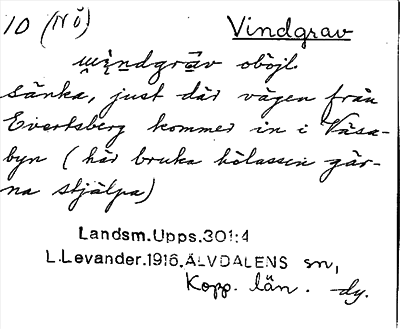 10 (Nö) Vindgrav
wi̯ndgräv oböjl.
sänka, just där vägen från
Evertsberg kommer in i Väsa-
byn (här bruka hölassen gär-
na stjälpa)
Landsm.Upps.301:4
L.Levander.1916.ÄLVDALENS sn,
Kopp. län. dy.